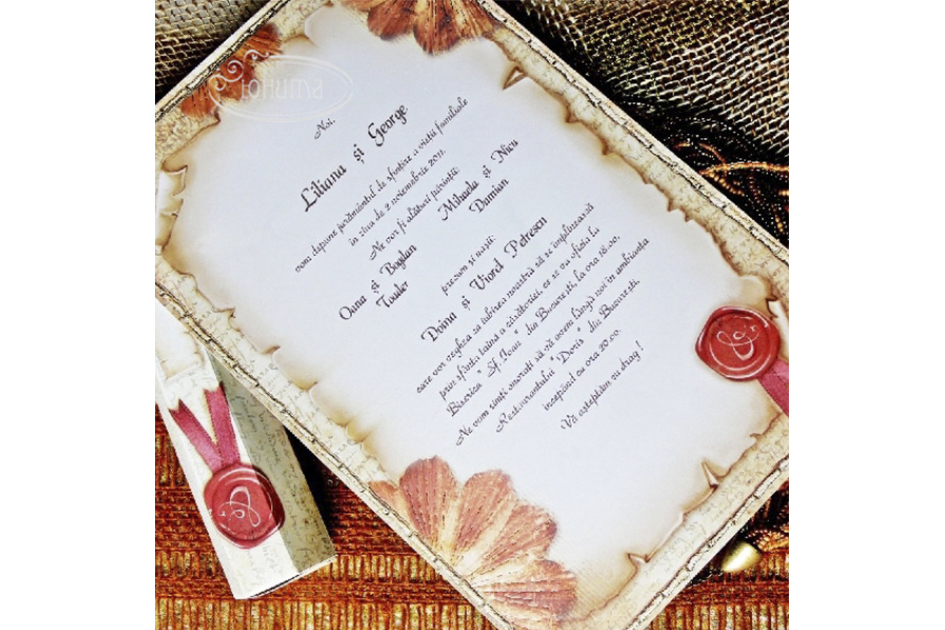 Tohuma
Noi,
Liliana și George
vom depune jurământul de sfințire a vieții familiale
în ziua de 2 noiembrie 2011.
Ne vor fi alături părinții:
Oana și Bogdan
Toader
Mihaela și Nicu
Damian
precum și nașii:
Doina și Viorel Petrescu
care vor veghea ca iubirea noastră să se împlinească
prin sfânta taină a căsătoriei, ce se va oficia la
Biserica "Sf. Ioan" din București, la ora 18.00.
Ne vom simți onorați să vă avem lângă noi în ambianța
Restaurantului "Doris" din București,
începând cu ora 20.00.
Vă așteptăm cu drag !